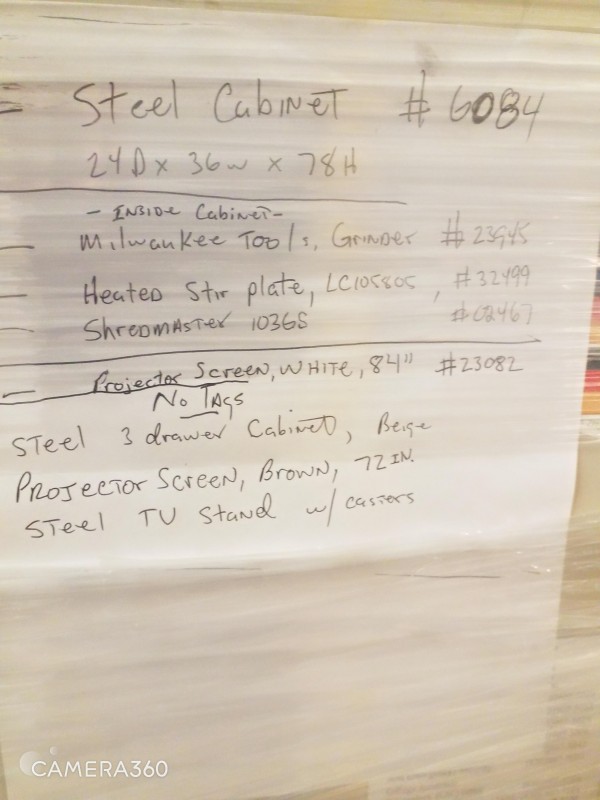 = Steel Cabinet # 6084
24D x 36w x 78H
- Inside Cabinet -
— Milwaukee Tools, Grinder #23945
— Heated Stir plate, LC105805, #32499
— Shredmaster 1036S #02467
— Projector Screen, White, 84" #23082
No Tags
Steel 3 drawer Cabinet, Beige
Projector Screen, Brown, 72 in.
Steel TV Stand w/ casters
CAMERA360